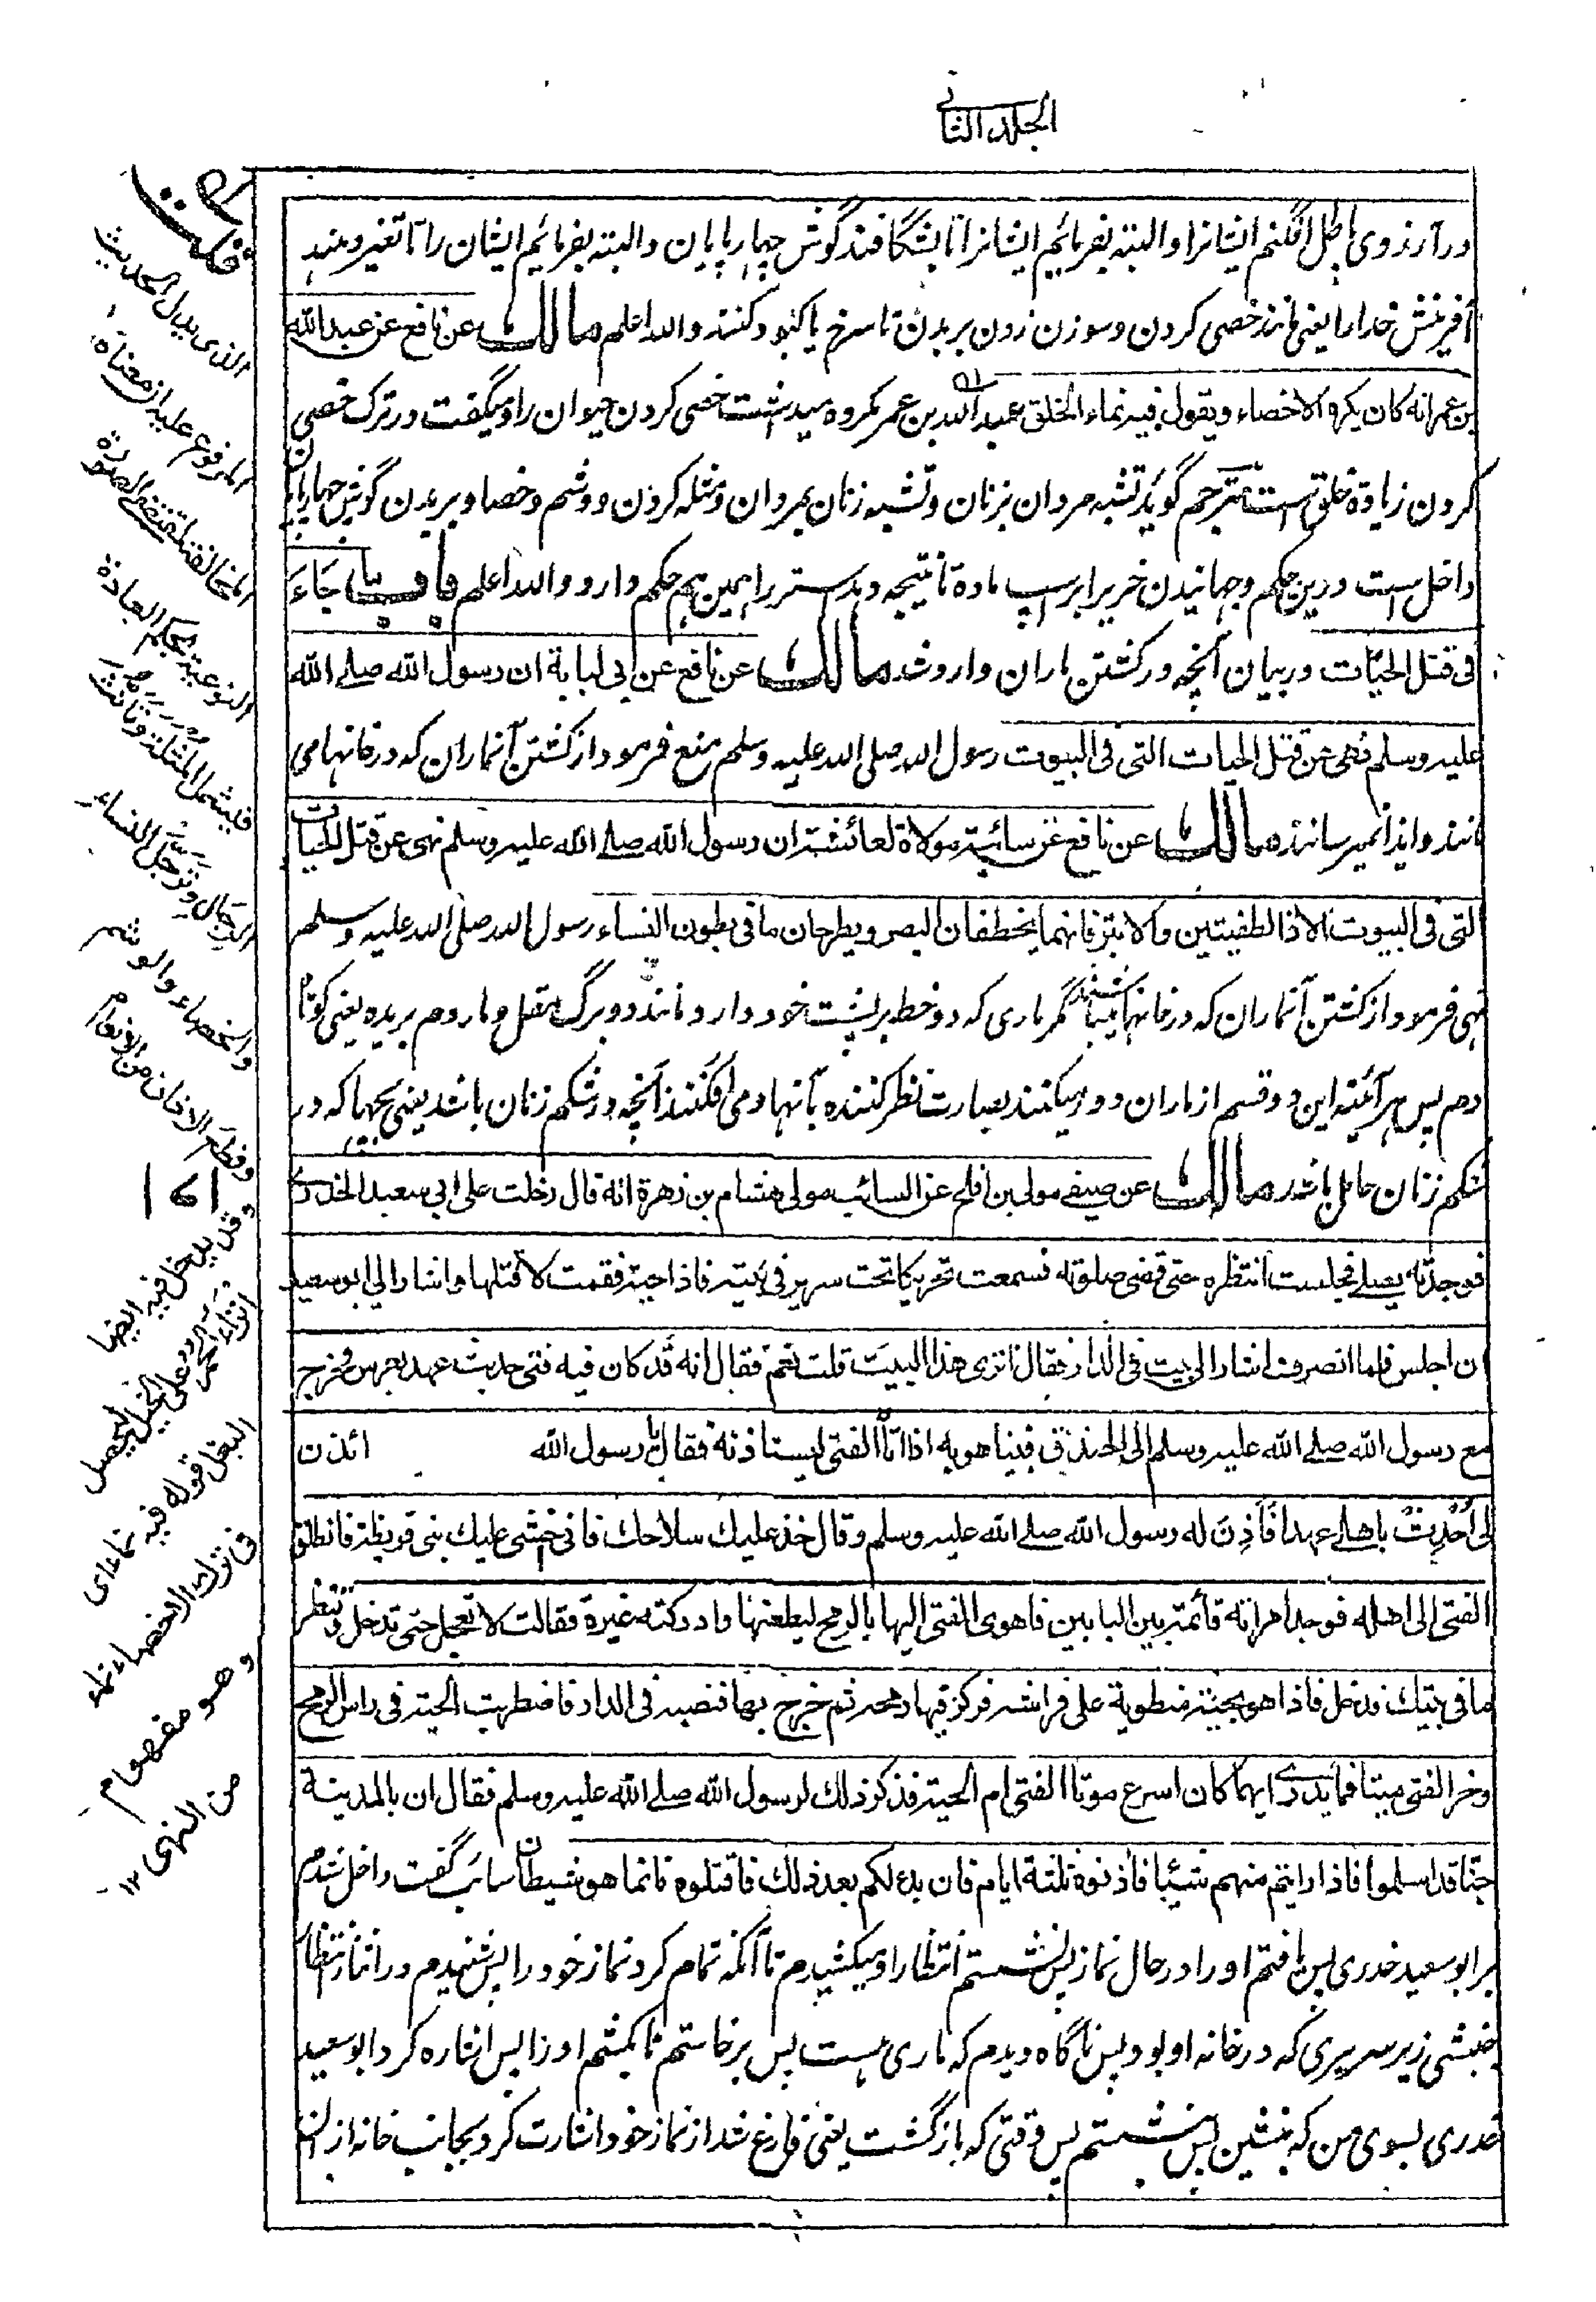 الجلد الثانی
در آرزوی باطل افگنم ایشانرا و البته بفرمائیم ایشانرا تا بشگافند گوش چهار پایان و البته بفرمائیم ایشان را تا تغیر دهند
آفرینش خدا را یعنی مانند خصی کردن و سوزن زدن بر بدن تا سرخ یا کبود کنند والله اعلم مالك عن نافع عن عبد الله
بن عمر انه كان يكره الاخصاء ويقول فيه نماء الخلق عبد الله بن عمر مکروه میداشت خصی کردن حیوان را و میگفت در ترک خصی
کردن زیادة خلق ست مترجم گوید تشبه مردان بزنان و تشبه زنان بمردان و مثله کردن و وشم و خصا و بریدن گوش چهارپایان
داخل ست درین حکم و جهانیدن خر برابر اسپ ماده تا نتیجه دهد استر را همین حکم دارد والله اعلم باب ما جَاءَ
فی قتل الحيّات در بیان آنچه در کشتن ماران وارد شد مالك عن نافع عن ابى لبابة ان رسول الله صلے الله
عليه وسلم نهى عن قتل الحيات التى فى البيوت رسول الله صلی الله علیه وسلم منع فرمود از کشتن آنماران که در خانها می
مانند و ایذا نمیرسانند مالك عن نافع عن سائبة مولاة لعائشة ان رسول الله صلے الله عليه وسلم نهى عن قتل الحيات
التى فى البيوت الا ذا الطفيتين والابتر فانهما يخطفان البصر ويطرحان ما فى بطون النساء رسول الله صلی الله علیه وسلم
نهی فرمود از کشتن آنماران که در خانها باشند مگر ماری که دو خط بر پشت خود دارد مانند دو برگ مقل و مار دم بریده یعنی کوتاه
دم پس هر آئینه این دو قسم از ماران دور میکنند بصارت نظر کننده بآنها و می افگنند آنچه در شکم زنان باشد یعنی بچها که در
شکم زنان حامل باشد مالك عن صيفى مولى بن افلح عن السائب مولى هشام بن زهرة انه قال دخلت على ابى سعيد الخدرى
فوجدته يصلے فجلست انتظره حتى قضى صلوته فسمعت تحريكا تحت سرير فى بيته فاذا حية فقمت لاقتلها فاشار الى ابو سعيد
ان اجلس فلما انصرف اشار الى بيت فى الدار فقال اترى هذا البيت قلت نعم فقال انه قد كان فيه فتى حديث عهد بعرس فخرج
مع رسول الله صلے الله عليه وسلم الى الخندق فبينا هو به اذا اتاه الفتى ليستاذنه فقال يا رسول الله ائذن
لى اُحْدِثْ باهلے عهدا فَأَذِنَ له رسول الله صلے الله عليه وسلم وقال خذ عليك سلاحك فانى اخشى عليك بنى قريظة فانطلق
الفتى الى اهله فوجد امراته قائمة بين البابين فاهوى الفتى اليها بالرمح ليطعنها وادركته غيرة فقالت لا تعجل حتى تدخل وتنظر
ما فى بيتك فدخل فاذا هو بحية منطوية على فراشه فركز فيها رمحه ثم خرج بها فنصبه فى الدار فاضطربت الحية فى راس الرمح
وخر الفتى ميتا فما يُدرے ايهما كان اسرع موتا الفتى ام الحية فذكر ذلك لرسول الله صلے الله عليه وسلم فقال ان بالمدينة
جنّا قد اسلموا فاذا رايتم منهم شيئا فأذنوه ثلثة ايام فان بدا لكم بعد ذلك فاقتلوه فانما هو شيطان سائب گفت داخل شدم
بر ابو سعید خدری پس یافتم او را در حال نماز پس نشستم انتظار او میکشیدم تا آنکه تمام کرد نماز خود را پس شنیدم در اثنای انتظار
جنبشی زیر سریری که در خانه او بود پس ناگاه دیدم که ماری هست پس برخاستم تا بکشم او را پس اشاره کرد ابو سعید
خدری بسوی من که بنشین پس نشستم پس وقتی که بازگشت یعنی فارغ شد از نماز خود اشارت کرد بجانب خانه از ان
قلت
الذی یدل الحدیث
المرفوع علیه ان معناه
المخالفة لمقتضی الصورة
النوعیة بحکم العادة
فیشمل المثلة و تانث
الرجال و ترجل النساء
والخصاء والوشم
وقطع الاذان من الانعام
۱۶۱
وقد یدخل فیه ایضا
انزاء الحمر علی الخیل لیحصل
البغل قوله فیه نماء ای
فی ترك الاخصاء نماء
وهو مفهوم
من النهی ۱۲